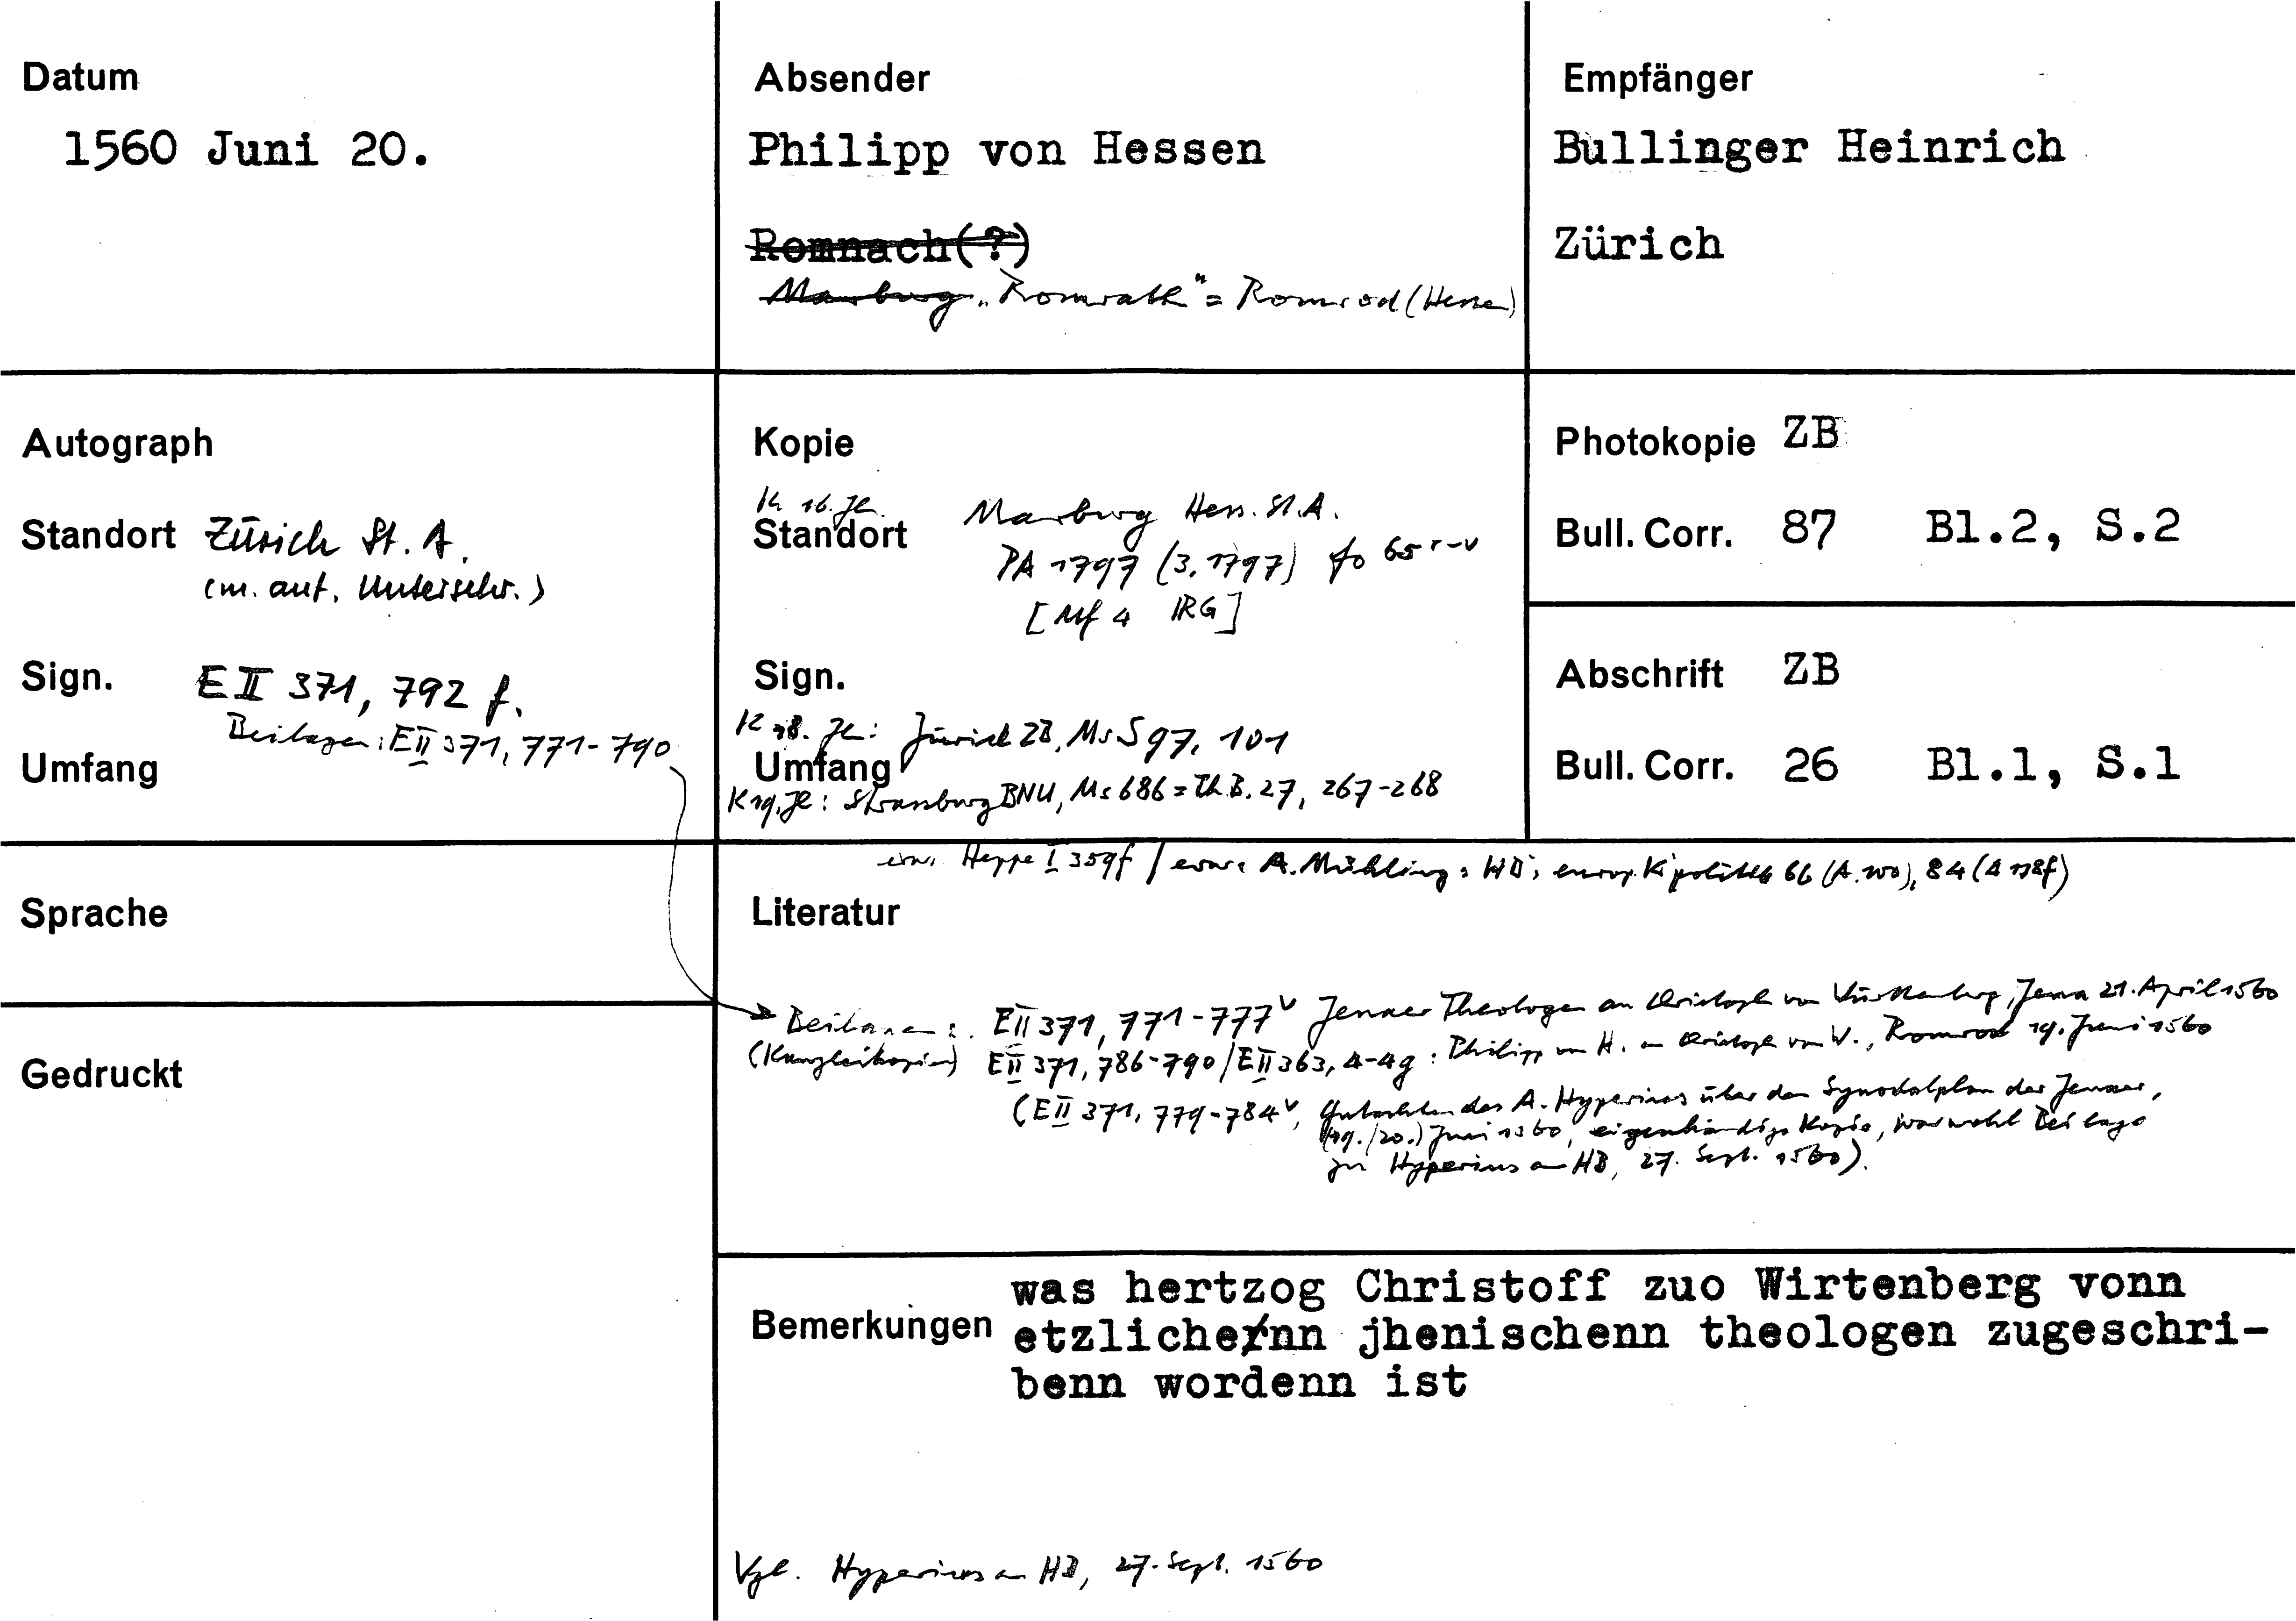 Datum
1560 Juni 20.
Absender
Philipp von Hessen
Romnach(?)
Marburg „Romrath" = Romrod (Hessen)
Empfänger
Bullinger Heinrich
Zürich
Autograph
Standort Zürich St. A.
(m. aut. Unterschr.)
Sign. E II 371, 792 f.
Beilagen: E II 371, 771-790
Umfang
Kopie
K 16. Jh.
Standort Marburg Hess. St. A.
PA 1797 (3. 1797) fo 65 r-v
[Mf 4 IRG]
Sign.
K 18. Jh: Zürich ZB, Ms S 97, 101
Umfang
K 19. Jh: Strassburg BNU, Ms 686 = Th. B. 27, 267-268
Photokopie ZB
Bull. Corr. 87 Bl.2, S.2
Abschrift ZB
Bull. Corr. 26 Bl.1, S.1
Sprache
Gedruckt
Heppe I 359f / A. Mühling: HB, europ. K'politik 66 (A. 100), 84 (A 178f)
Literatur
Beilagen: E II 371, 771-777v Jenaer Theologen an Christoph von Württemberg, Jena 21. April 1560
(Kanzleikopien) E II 371, 786-790 / E II 363, 4-4g: Philipp von H. an Christoph von W., Romrod 19. Juni 1560
(E II 371, 779-784v, Gutachten des A. Hyperius über den Synodalplan der Jenaer,
(19./20.) Juni 1560, eigenhändige Kopie, war wohl Beilage
zu Hyperius an HB, 27. Sept. 1560).
Bemerkungen
was hertzog Christoff zuo Wirtenberg vonn
etzlichenn jhenischenn theologen zugeschri-
benn wordenn ist
Vgl. Hyperius an HB, 27. Sept. 1560